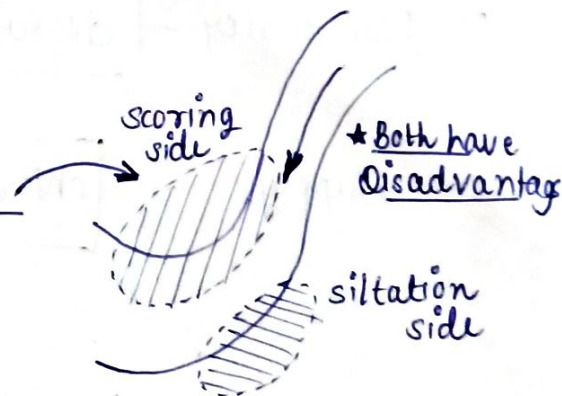 scoring
side
★ Both have
Disadvantag
siltation
side